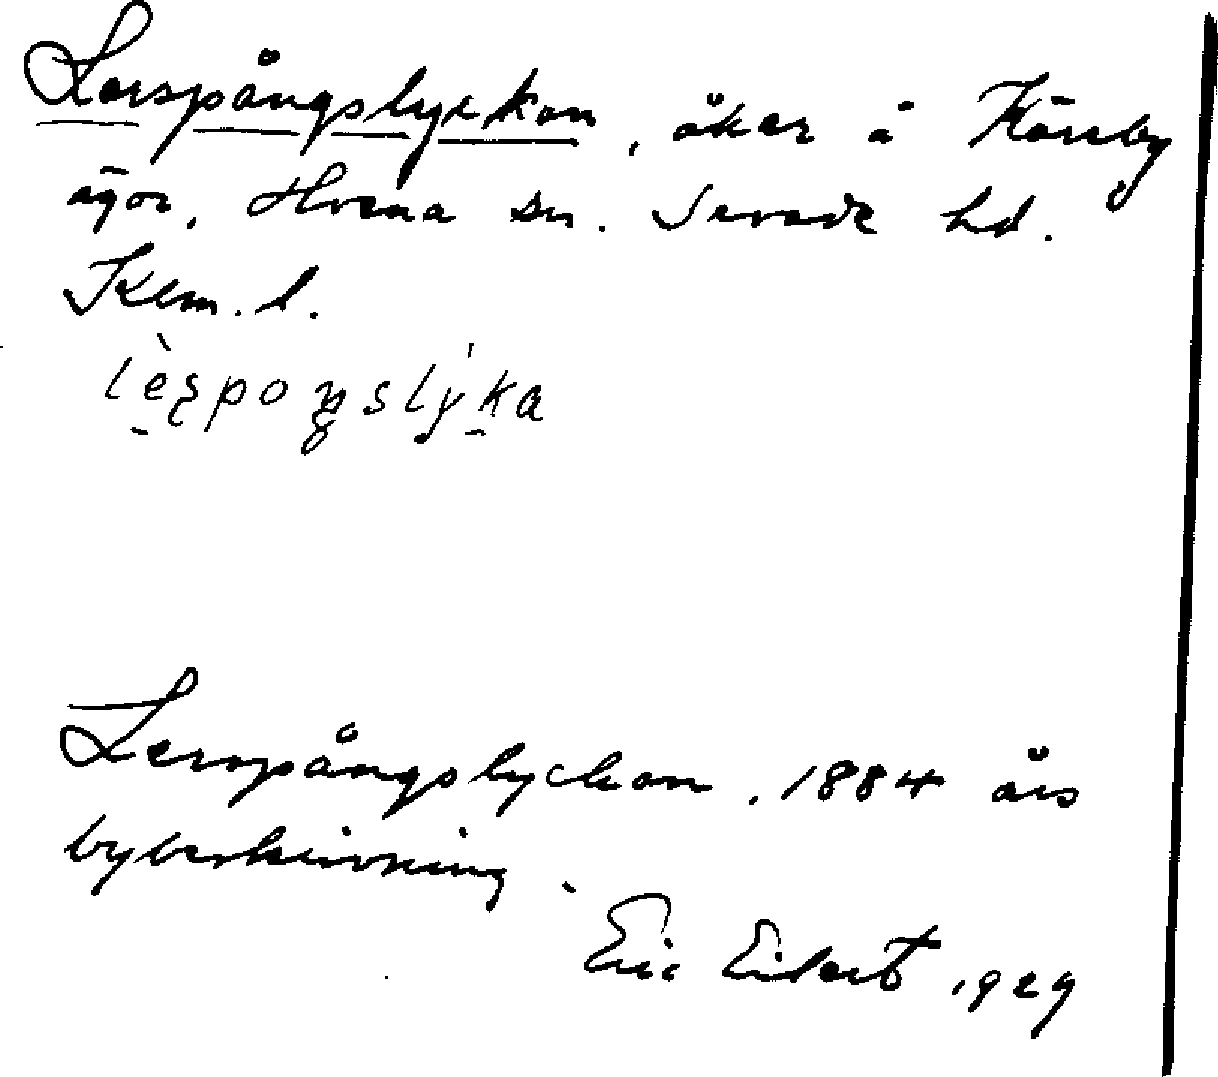 Lerspångslyckan, åker å Flöxeby
ägor, Hvena sn. Sevede hd.
Klm. l.
lèspoŋslýka
Lerspångslyckan, 1884 års
bybeskrivning.
Eric Eilert 1929